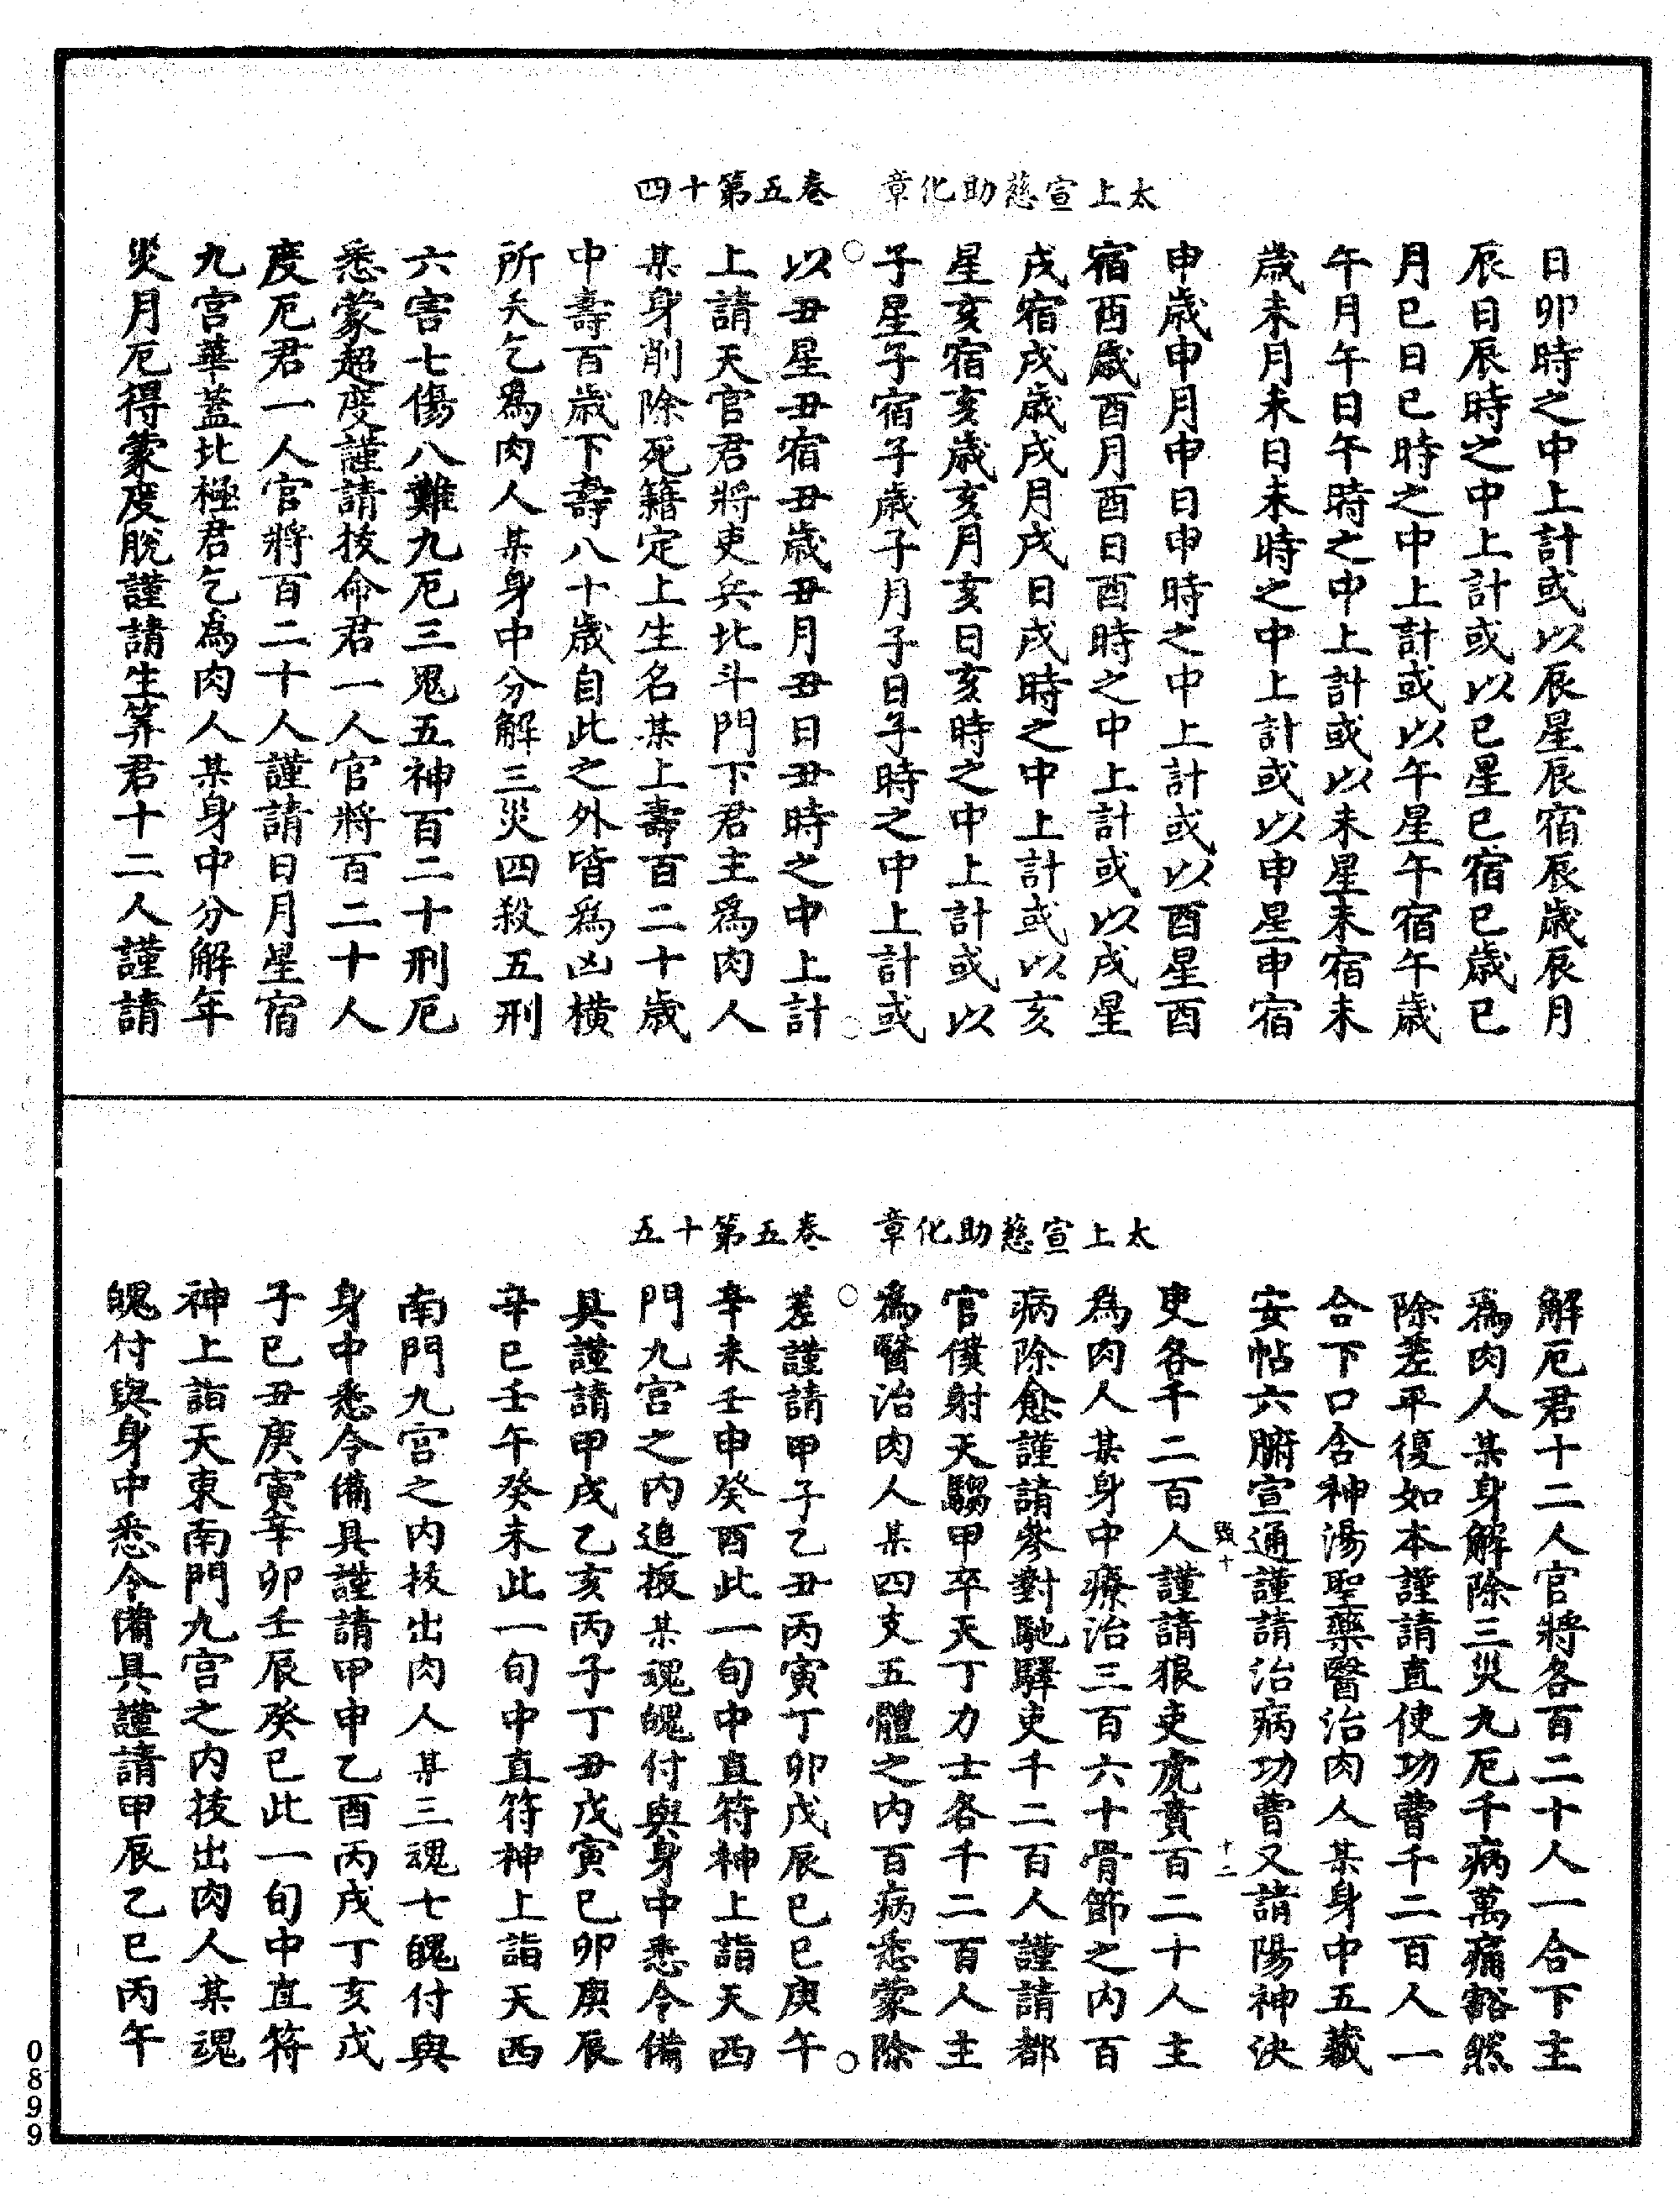 太上宣慈助化章　卷五第十四
日卯時之中上計或以辰星辰宿辰歲辰月
辰日辰時之中上計或以巳星巳宿巳歲巳
月巳日巳時之中上計或以午星午宿午歲
午月午日午時之中上計或以未星未宿未
歲未月未日未時之中上計或以申星申宿
申歲申月申日申時之中上計或以酉星酉
宿酉歲酉月酉日酉時之中上計或以戌星
戌宿戌歲戌月戌日戌時之中上計或以亥
星亥宿亥歲亥月亥日亥時之中上計或以
子星子宿子歲子月子日子時之中上計或
以丑星丑宿丑歲丑月丑日丑時之中上計
上請天官君將吏兵北斗門下君主爲肉人
某身削除死籍定上生名某上壽百二十歲
中壽百歲下壽八十歲自此之外皆爲凶橫
所夭乞爲肉人某身中分解三災四殺五刑
六害七傷八難九厄三鬼五神百二十刑厄
悉蒙超度謹請拔命君一人官將百二十人
度厄君一人官將百二十人謹請日月星宿
九宮華蓋北極君乞為肉人某身中分解年
災月厄得蒙度脫謹請生筭君十二人謹請
太上宣慈助化章　卷五第十五
解厄君十二人官將各百二十人一合下主
爲肉人某身解除三災九厄千病萬痛豁然
除差平復如本謹請直使功曹千二百人一
合下口含神湯聖藥醫治肉人某身中五藏
安帖六腑宣通謹請治病功曹又請陽神決
吏各千二百人謹請狼吏虎賁百二十人主
為肉人某身中療治三百六十骨節之內百
病除愈謹請參對馳驛吏千二百人謹請都
官僕射天騶甲卒天丁力士各千二百人主
爲醫治肉人某四支五體之內百病悉蒙除
差謹請甲子乙丑丙寅丁卯戊辰己巳庚午
辛未壬申癸酉此一旬中直符神上詣天西
門九宮之內追扳某魂魄付與身中悉令備
具謹請甲戌乙亥丙子丁丑戊寅己卯庚辰
辛巳壬午癸未此一旬中直符神上詣天西
南門九宮之內拔出肉人某三魂七魄付與
身中悉令備具謹請甲申乙酉丙戌丁亥戊
子己丑庚寅辛卯壬辰癸巳此一旬中直符
神上詣天東南門九宮之內拔出肉人某魂
魄付與身中悉令備具謹請甲辰乙巳丙午
十二
0899